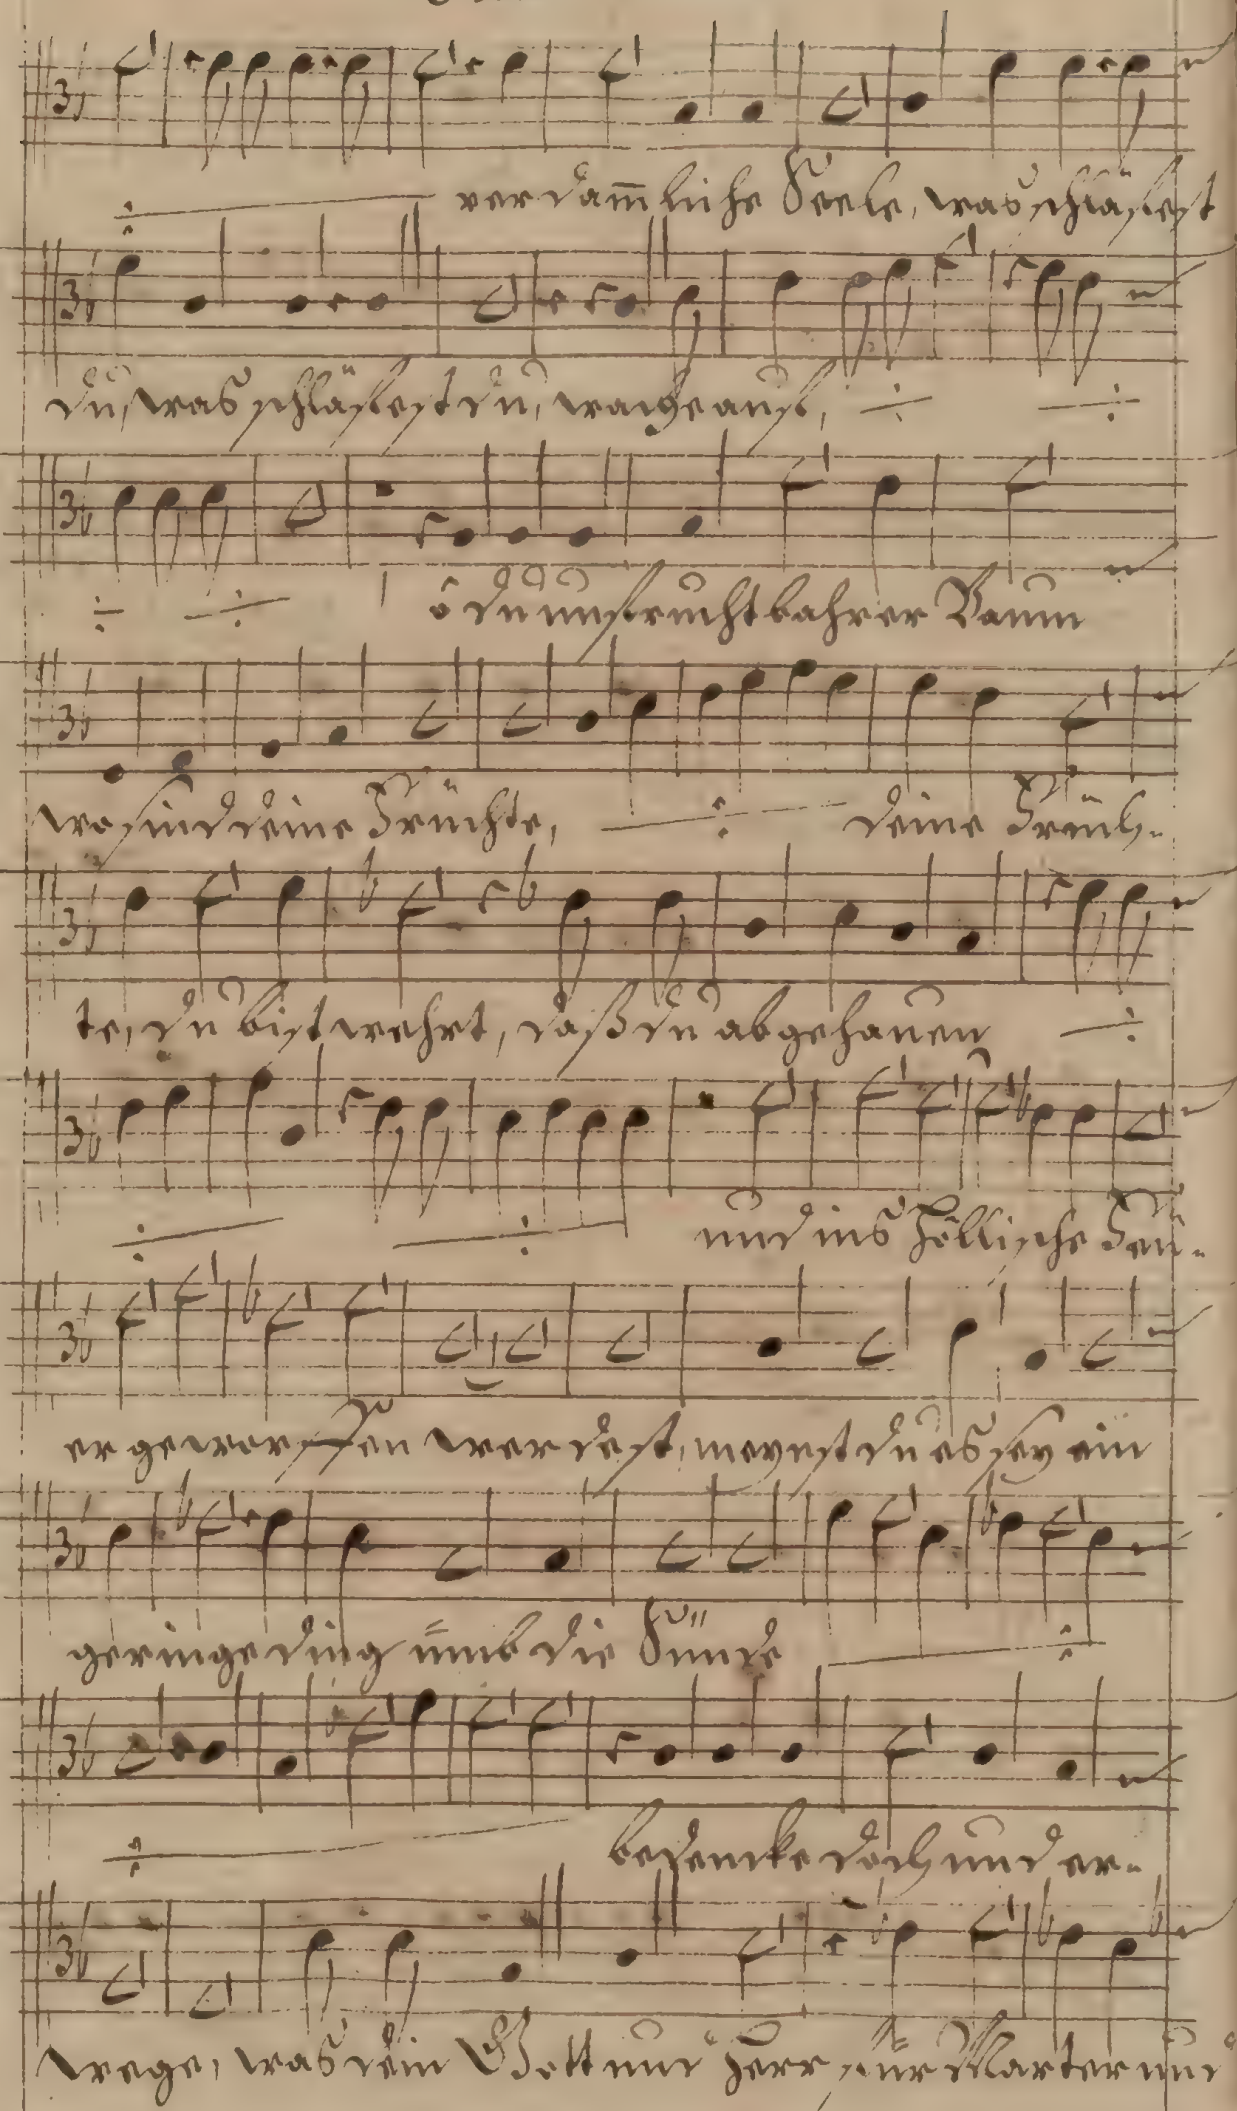 ÷ verdam̄liche Seele, was schläfest
du, was schläfest du, wache auf, ÷ ÷
÷ ÷ ô du unfruchtbahrer Baum
wo sind deine Früchte, ÷ deine Früch-
te, du bist wehrt, daß du abgehauen ÷
÷ ÷ und ins Höllische Feü-
er geworffen werdest, meynst du es sey ein
geringe ding ümb die Sünde ÷
÷ bedencke doch und er-
wege, was dein Gott und Herr für Marter und